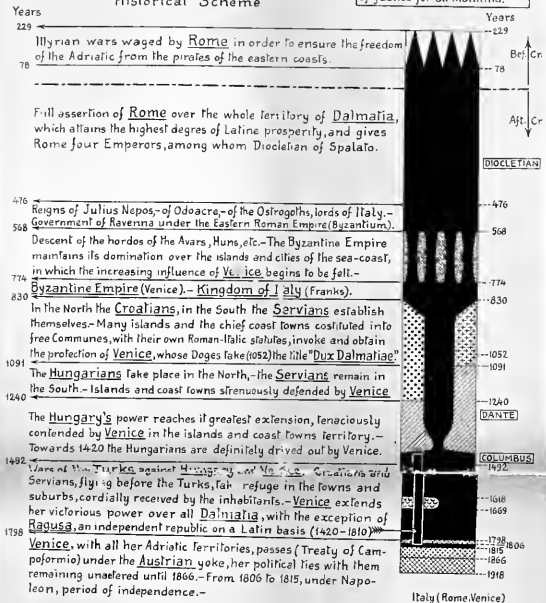 Historical Scheme
of Justice for all Mankind.
Years
Years
229
229
Illyrian wars waged by Rome in order to ensure the freedom
of the Adriatic from the pirates of the eastern coasts.
78
78
Bef. Cr.
Aft. Cr
Full assertion of Rome over the whole territory of Dalmatia,
which attains the highest degres of Latine prosperity, and gives
Rome four Emperors, among whom Diocletian of Spalato.
DIOCLETIAN
476
476
Reigns of Julius Nepos,-of Odoacre,-of the Ostrogoths, lords of Italy.-
Government of Ravenna under the Eastern Roman Empire (Byzantium).
568
568
Descent of the hordos of the Avars, Huns, etc.-The Byzantine Empire
maintains its domination over the islands and cities of the sea-coast,
in which the increasing influence of Venice begins to be felt.-
774
774
Byzantine Empire (Venice).- Kingdom of Italy (Franks).
830
830
In the North the Croatians, in the South the Servians establish
themselves.- Many islands and the chief coast towns costituted into
free Communes, with their own Roman-Italic statutes, invoke and obtain
the protection of Venice, whose Doges take (1052) the title "Dux Dalmatiae"
1052
1091
1091
The Hungarians take place in the North,-the Servians remain in
the South.- Islands and coast towns strenuously defended by Venice
1240
1240
DANTE
The Hungary's power reaches it greatest extension, tenaciously
contended by Venice in the islands and coast towns territory.-
Towards 1420 the Hungarians are definitely drived out by Venice.
COLUMBUS
1492
1492
Wars of the Turks against Hungary and Venice. Croatians and
Servians, flying before the Turks, take refuge in the towns and
suburbs, cordially received by the inhabitants.-Venice extends
her victorious power over all Dalmatia, with the exception of
Ragusa, an independent republic on a Latin basis (1420-1810)
1618
1669
1798
1798
1806
Venice, with all her Adriatic Territories, passes (Treaty of Cam-
poformio) under the Austrian yoke, her political ties with them
remaining unaetered until 1866.- From 1806 to 1815, under Napo-
leon, period of independence.-
1815
1866
1918
Italy (Rome, Venice)